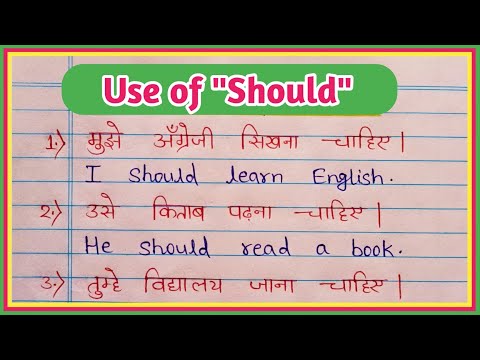 Use of "Should"
1.) मुझे अँग्रेजी सिखना चाहिए।
I should learn English.
2.) उसे किताब पढ़ना चाहिए।
He should read a book.
3.) तुम्हे विद्यालय जाना चाहिए।